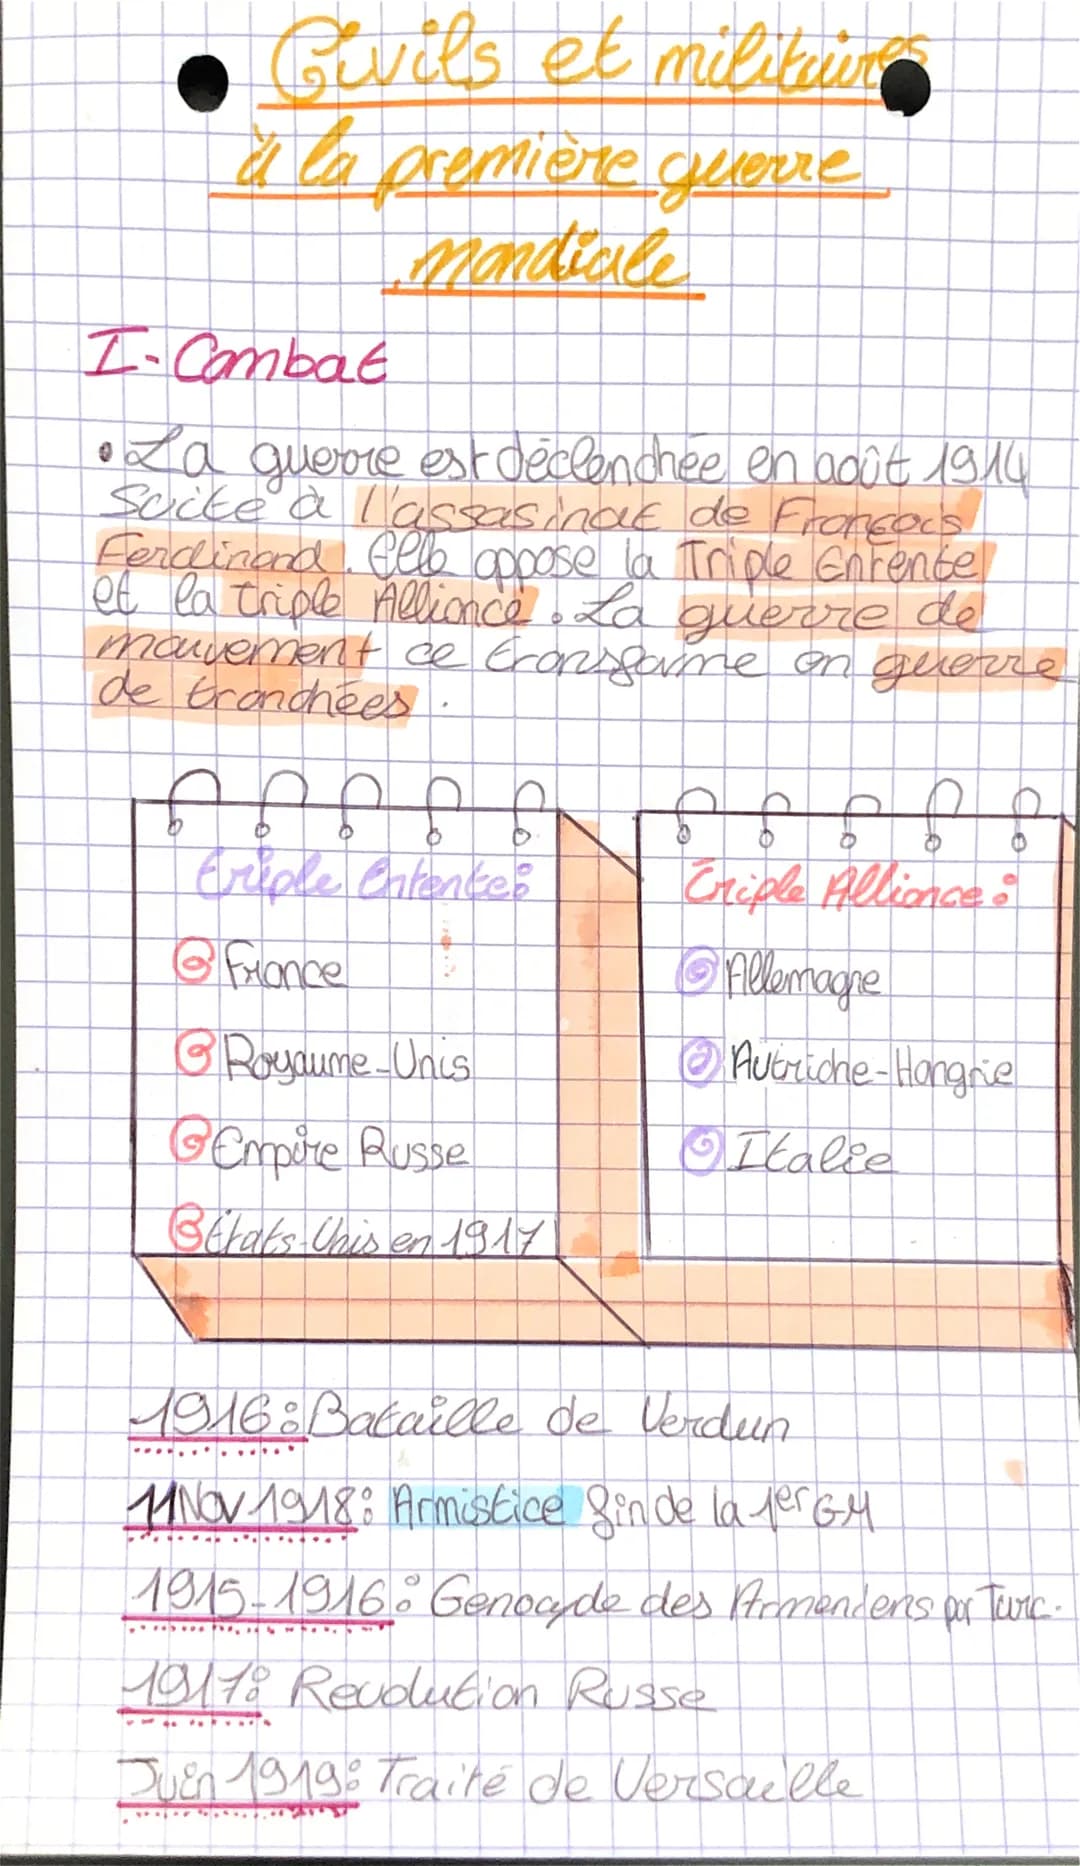 Civils et militaires
à la première guerre
mondiale
I- Combat
• La guerre est déclenchée en août 1914
Suite à l'assasinat de François
Ferdinand. Elle oppose la Triple Entente
et la triple Alliance. La guerre de
mouvement ce transforme en guerre
de tranchées.
Triple Entente:
France
Royaume-Unis
Empire Russe
États-Unis en 1917
Triple Alliance:
Allemagne
Autriche-Hongrie
Italie
1916: Bataille de Verdun
11 Nov 1918: Armistice fin de la 1er GM
1915-1916: Genocyde des Armeniens par Turc.
1917: Revolution Russe
Juin 1919: Traité de Versaille